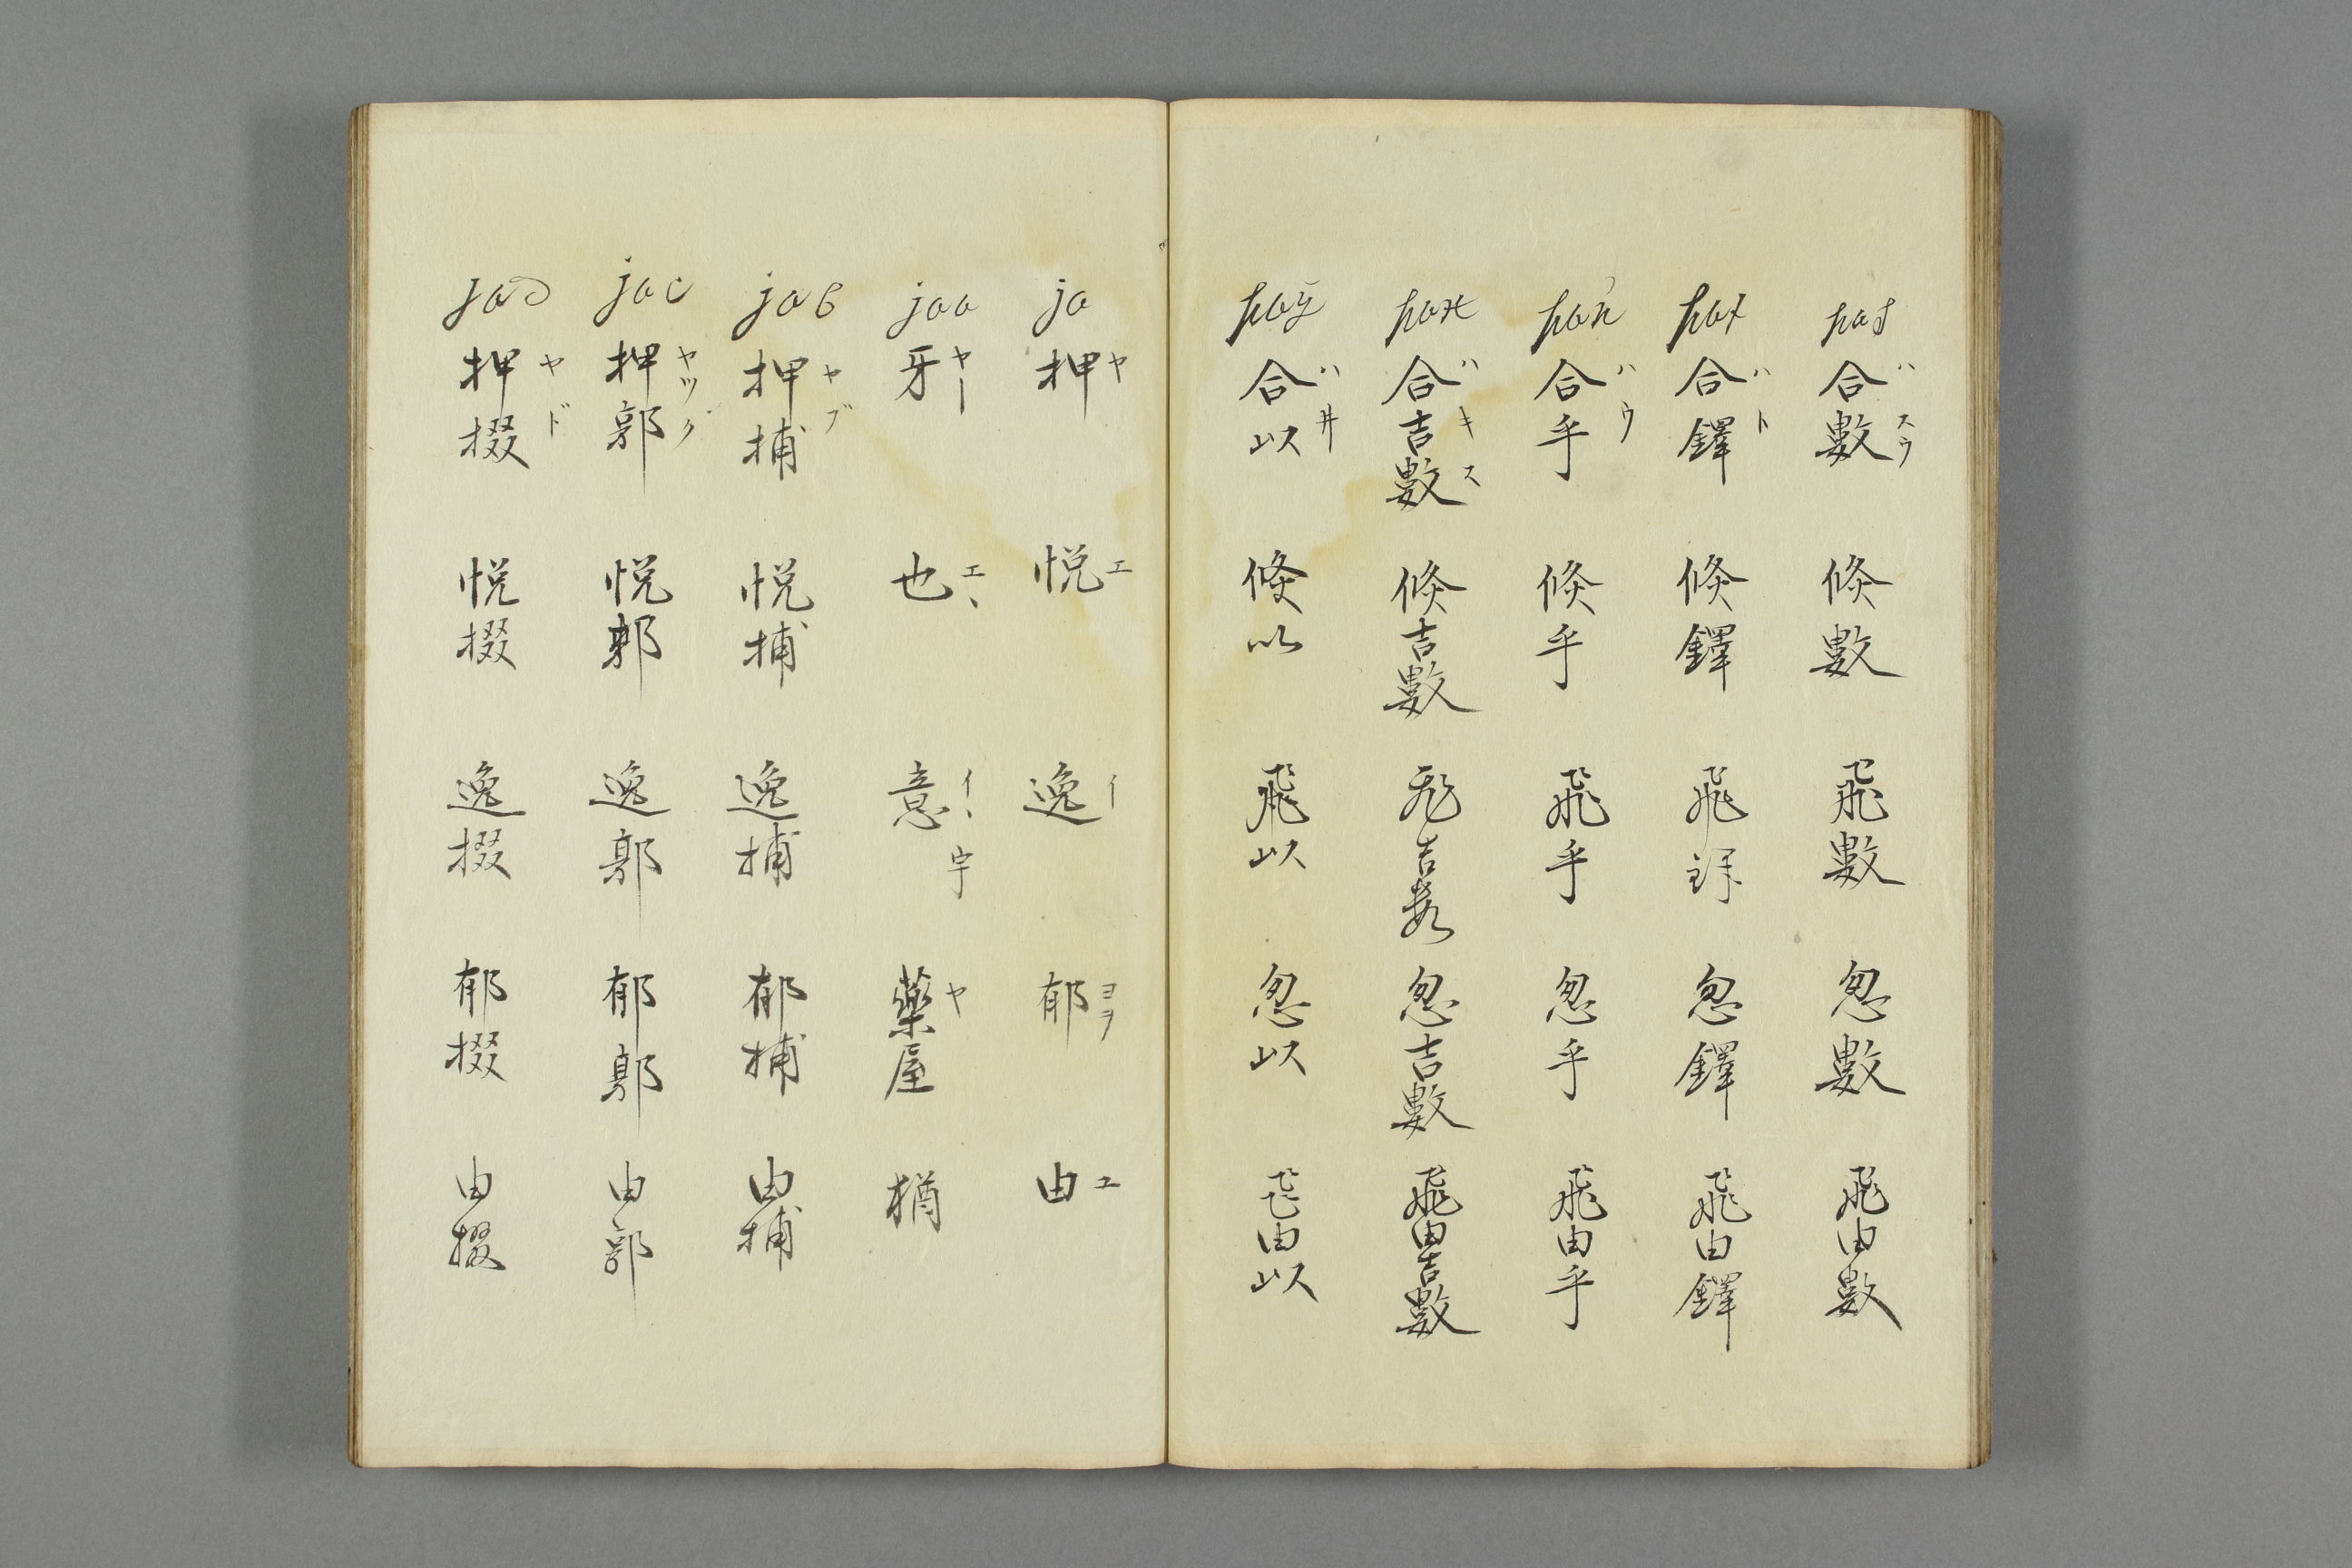 has 合數 ハスウ 倏數 飛數 忽數 飛由數
hat 合鐸 ハト 倏鐸 飛鐸 忽鐸 飛由鐸
合乎 ハウ 倏乎 飛乎 忽乎 飛由乎
hax 合吉數 ハキス 倏吉數 飛吉數 忽吉數 飛由吉數
haÿ 合以 ハ井 倏以 飛以 忽以 飛由以
ja 押 ヤ 悦 エ 逸 イ 郁 ヨヲ 由 ユ
jaa 牙 ヤー 也 エヽ 意 イヽ 宇 藥屋 ヤ 猶
jab 押捕 ヤブ 悦捕 逸捕 郁捕 由捕
jac 押郭 ヤツグ 悦郭 逸郭 郁郭 由郭
jad 押掇 ヤド 悦掇 逸掇 郁掇 由掇